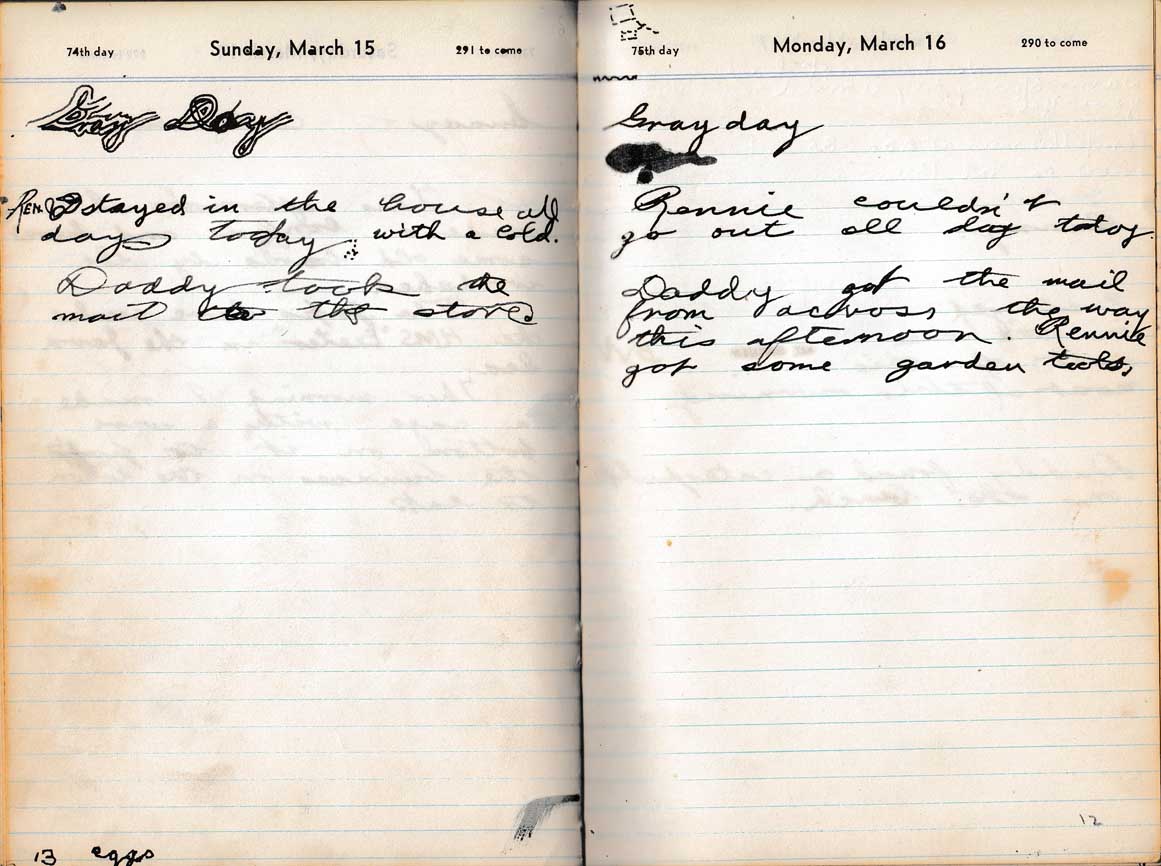 74th day Sunday, March 15 291 to come
Gray Day
Ren. stayed in the house all
day today with a cold.
Daddy took the
mail to the store
13 eggs
75th day Monday, March 16 290 to come
Gray day
Rennie couldn't
go out all day today.
Daddy got the mail
from across the way
this afternoon. Rennie
got some garden tools.
12